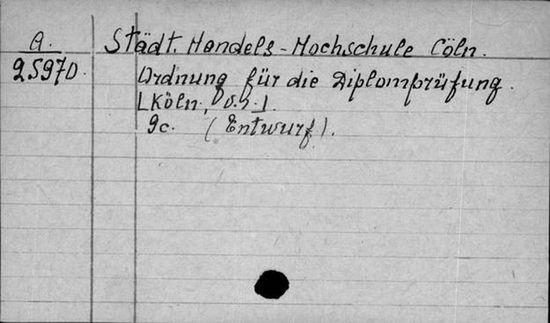 A. Städt. Handels-Hochschule Cöln.
25970. Ordnung für die Diplomprüfung.
[Köln, o.J.]
9c. (Entwurf).